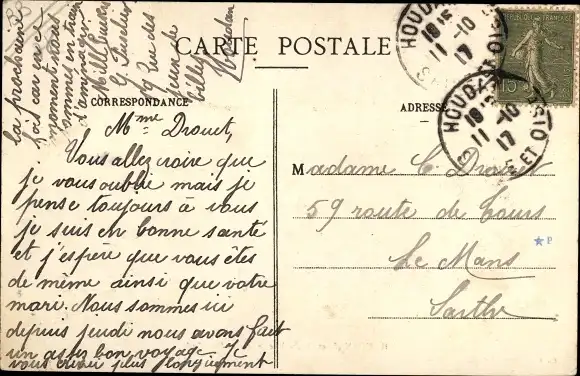 CARTE POSTALE
CORRESPONDANCE
ADRESSE
Mme Drouet,
Vous allez croire que
je vous oublie mais je
pense toujours à vous
je suis en bonne santé
et j'espère que vous êtes
de même ainsi que votre
mari. Nous sommes ici
depuis jeudi nous avons fait
un assez bon voyage. Je
vous écrirai plus longuement
la prochaine
fois car en ce
moment nous
sommes en train
d'aménager
Mlle
G.
rue des
jeux de
billes
Houdan
Madame C. Drouet
59 route de Tours
Le Mans
Sarthe
HOUDAN
S. ET OISE
18 15
11 -10
17
HOUDAN
S. ET OISE
18 15
11 -10
17
REPUBLIQUE FRANCAISE
15
P.
BB